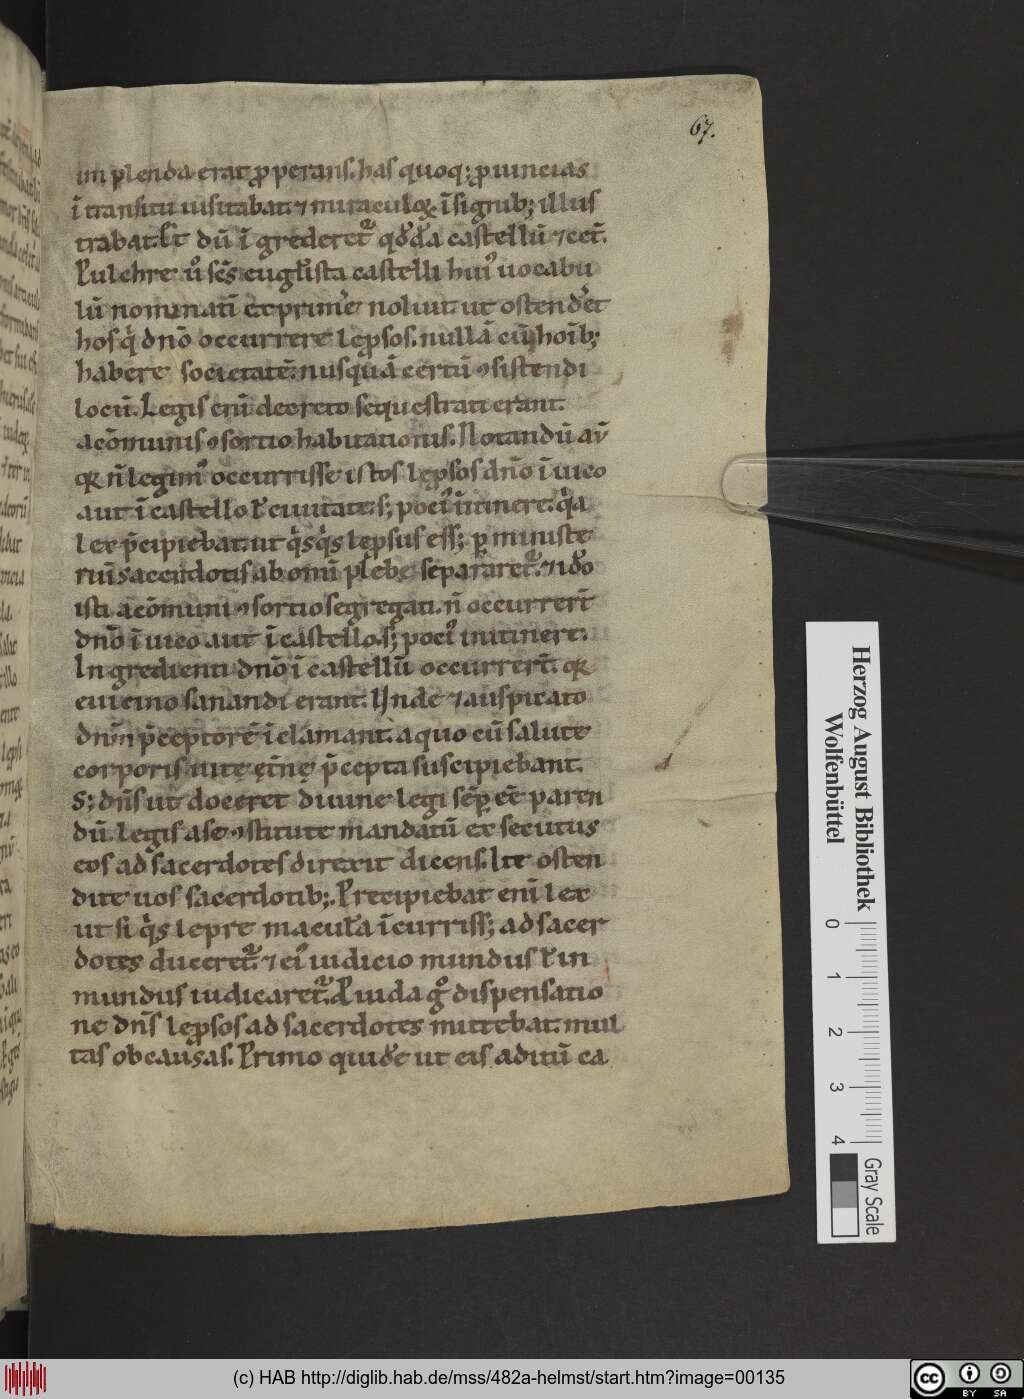 67.
im plenda erat ꝓperans. has quoq; ꝓuincias
ī transitu uisitabat. ⁊ miraculoꝝ īsignib; illus
trabat. Et dū īgrederet᷑ qͦdda castellū ⁊ cet̄.
Pulchre ů sc̄s eugl̄ista castelli hui᾽ uocabu
lū nominatī exprimᷓe noluit. ut ostendᷓet
hos qͥ dn̄o occurrere leprosos. nullā cū hoīb;
habere societatē. nusquā certū ꝯsistendi
locū. Legis enī decreto sequestrati erant.
a cōmunis ꝯsortio habitationis. Notandū aū
qꝛ n̄ legim᾽ occurrisse istos leprosos dn̄o ī uico
aut ī castello ł ciuitate. s; poci᾽ ītinere. qͥa
lex p̄cipiebat. ut qͥsqͥs leprsus ess; ꝑ ministe
riū sacerdotis ab omī plebe separaret᷑. ⁊ iďo
isti a cōmuni ꝯsortio segregati. n̄ occurrert̄
dn̄o ī uico aut ī castello. s; poci᾽ in itinere.
In gredienti dn̄o ī castellū occurrert̄. qꝛ
euicino sanandi erant. Unde ⁊ auspicato
dnm̄ p̄ceptorē īclamant. a quo cū salute
corporis uite et̄ne p̄cepta suscipiebant.
S; dn̄s ut doceret diuine legi sēꝑ eē paren
dū. legis a se ꝯstitute mandatū ex secutus
eos ad sacerdotes direxit dicens. Ite osten
dite uos sacerdotib;. Precipiebat enī lex
ut si qͥs lepre macula īcurriss; ad sacer
dotes duceret᷑. ⁊ ei᾽ iudicio mundus ł in
mundus iudicaret᷑. Prouida gͦ dispensatio
ne dn̄s leprosos ad sacerdotes mittebat. mul
tas ob causas. Primo quidē ut eis aditū ea
Herzog August Bibliothek
Wolfenbüttel
0 1 2 3 4
Gray Scale
(c) HAB http://diglib.hab.de/mss/482a-helmst/start.htm?image=00135
cc BY SA